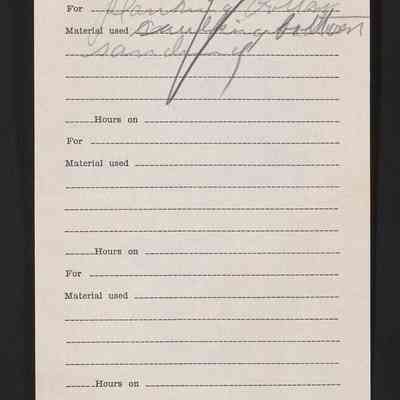 For
Material used caulking bottom
sanding
Hours on
For
Material used
Hours on
For
Material used
Hours on